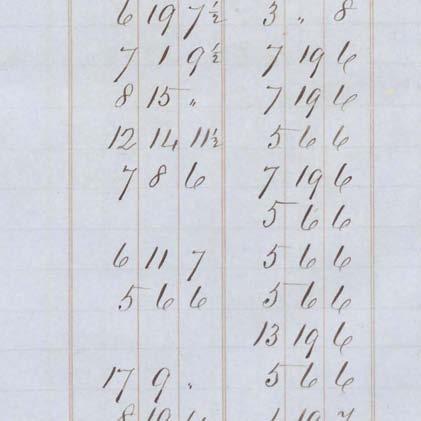 6 19 7½ 3 " 8
7 1 9½ 7 19 6
8 15 " 7 19 6
12 14 11½ 5 6 6
7 8 6 7 19 6
5 6 6
6 11 7 5 6 6
5 6 6 5 6 6
13 19 6
17 9 " 5 6 6
8 19